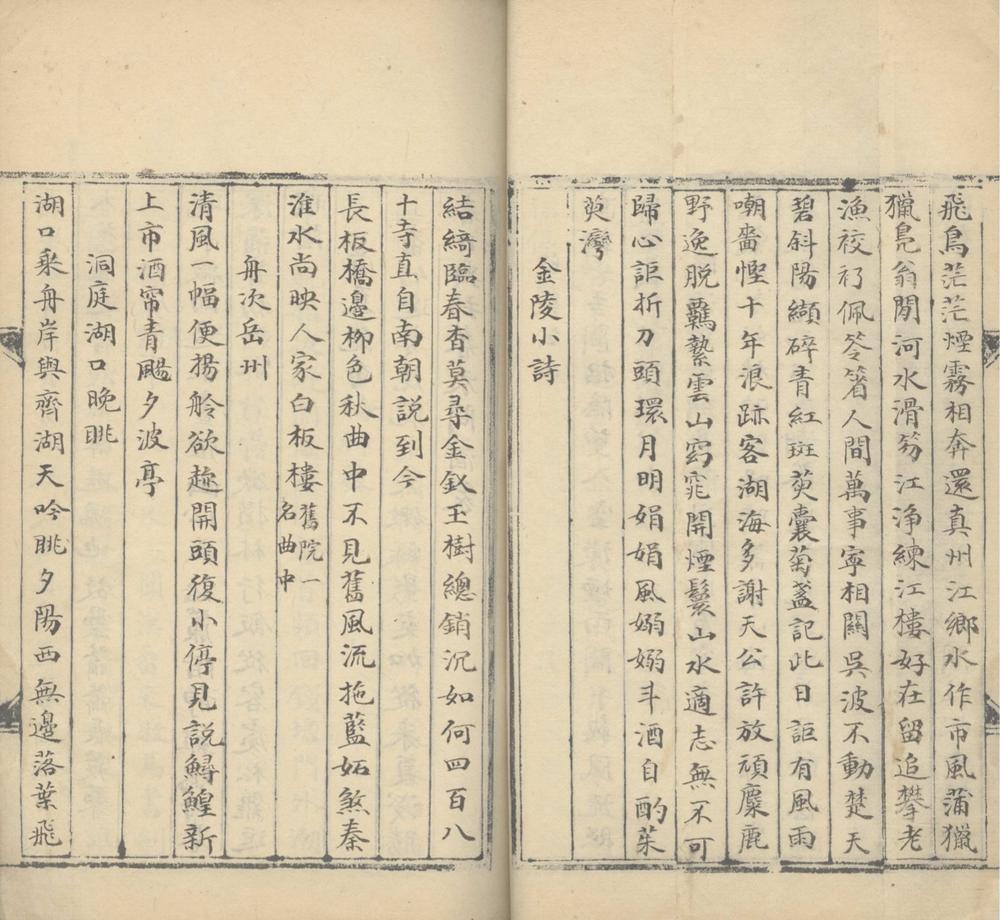 飛鳥茫茫煙霧相奔還真州江鄉水作市風蒲獵
獵鳧翁閒河水滑笏江淨練江樓好在留追攀老
漁衩衤佩笭箵人間萬事寧相關吳波不動楚天
碧斜陽纈碎青紅斑萸囊菊盞記此日詎有風雨
嘲嗇慳十年浪跡客湖海多謝天公許放頑麋鹿
野逸脫羈縶雲山窈窕開煙鬟山水適志無不可
歸心詎折刀頭環月明娟娟風嫋嫋斗酒自酌茱
萸灣
金陵小詩
結綺臨春杳莫尋金釵玉樹總銷沉如何四百八
十寺直自南朝說到今
長板橋邊柳色秋曲中不見舊風流拖藍妬煞秦
淮水尚映人家白板樓舊院一名曲中
舟次岳州
清風一幅便揚舲欲趂開頭復小停見說鱘鰉新
上市酒帘青颺夕波亭
洞庭湖口晚眺
湖口乘舟岸與齊湖天吟眺夕陽西無邊落葉飛